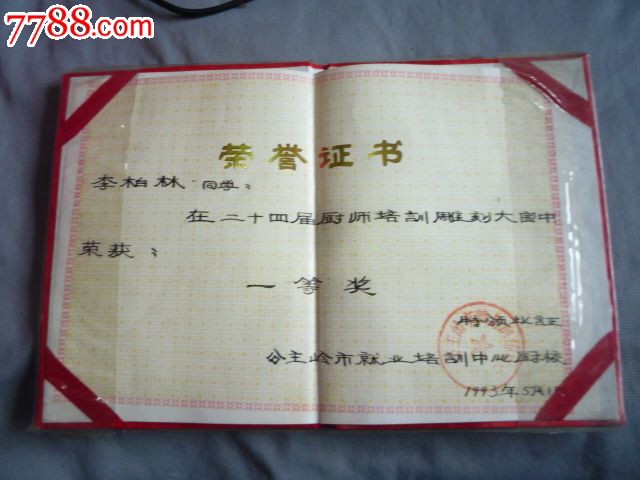 7788.com
荣誉证书
李柏林 同学:
在二十四届厨师培训雕刻大图中
荣获:
一等奖
特颁此证
公主岭市就业培训中心厨校
1993年5月1